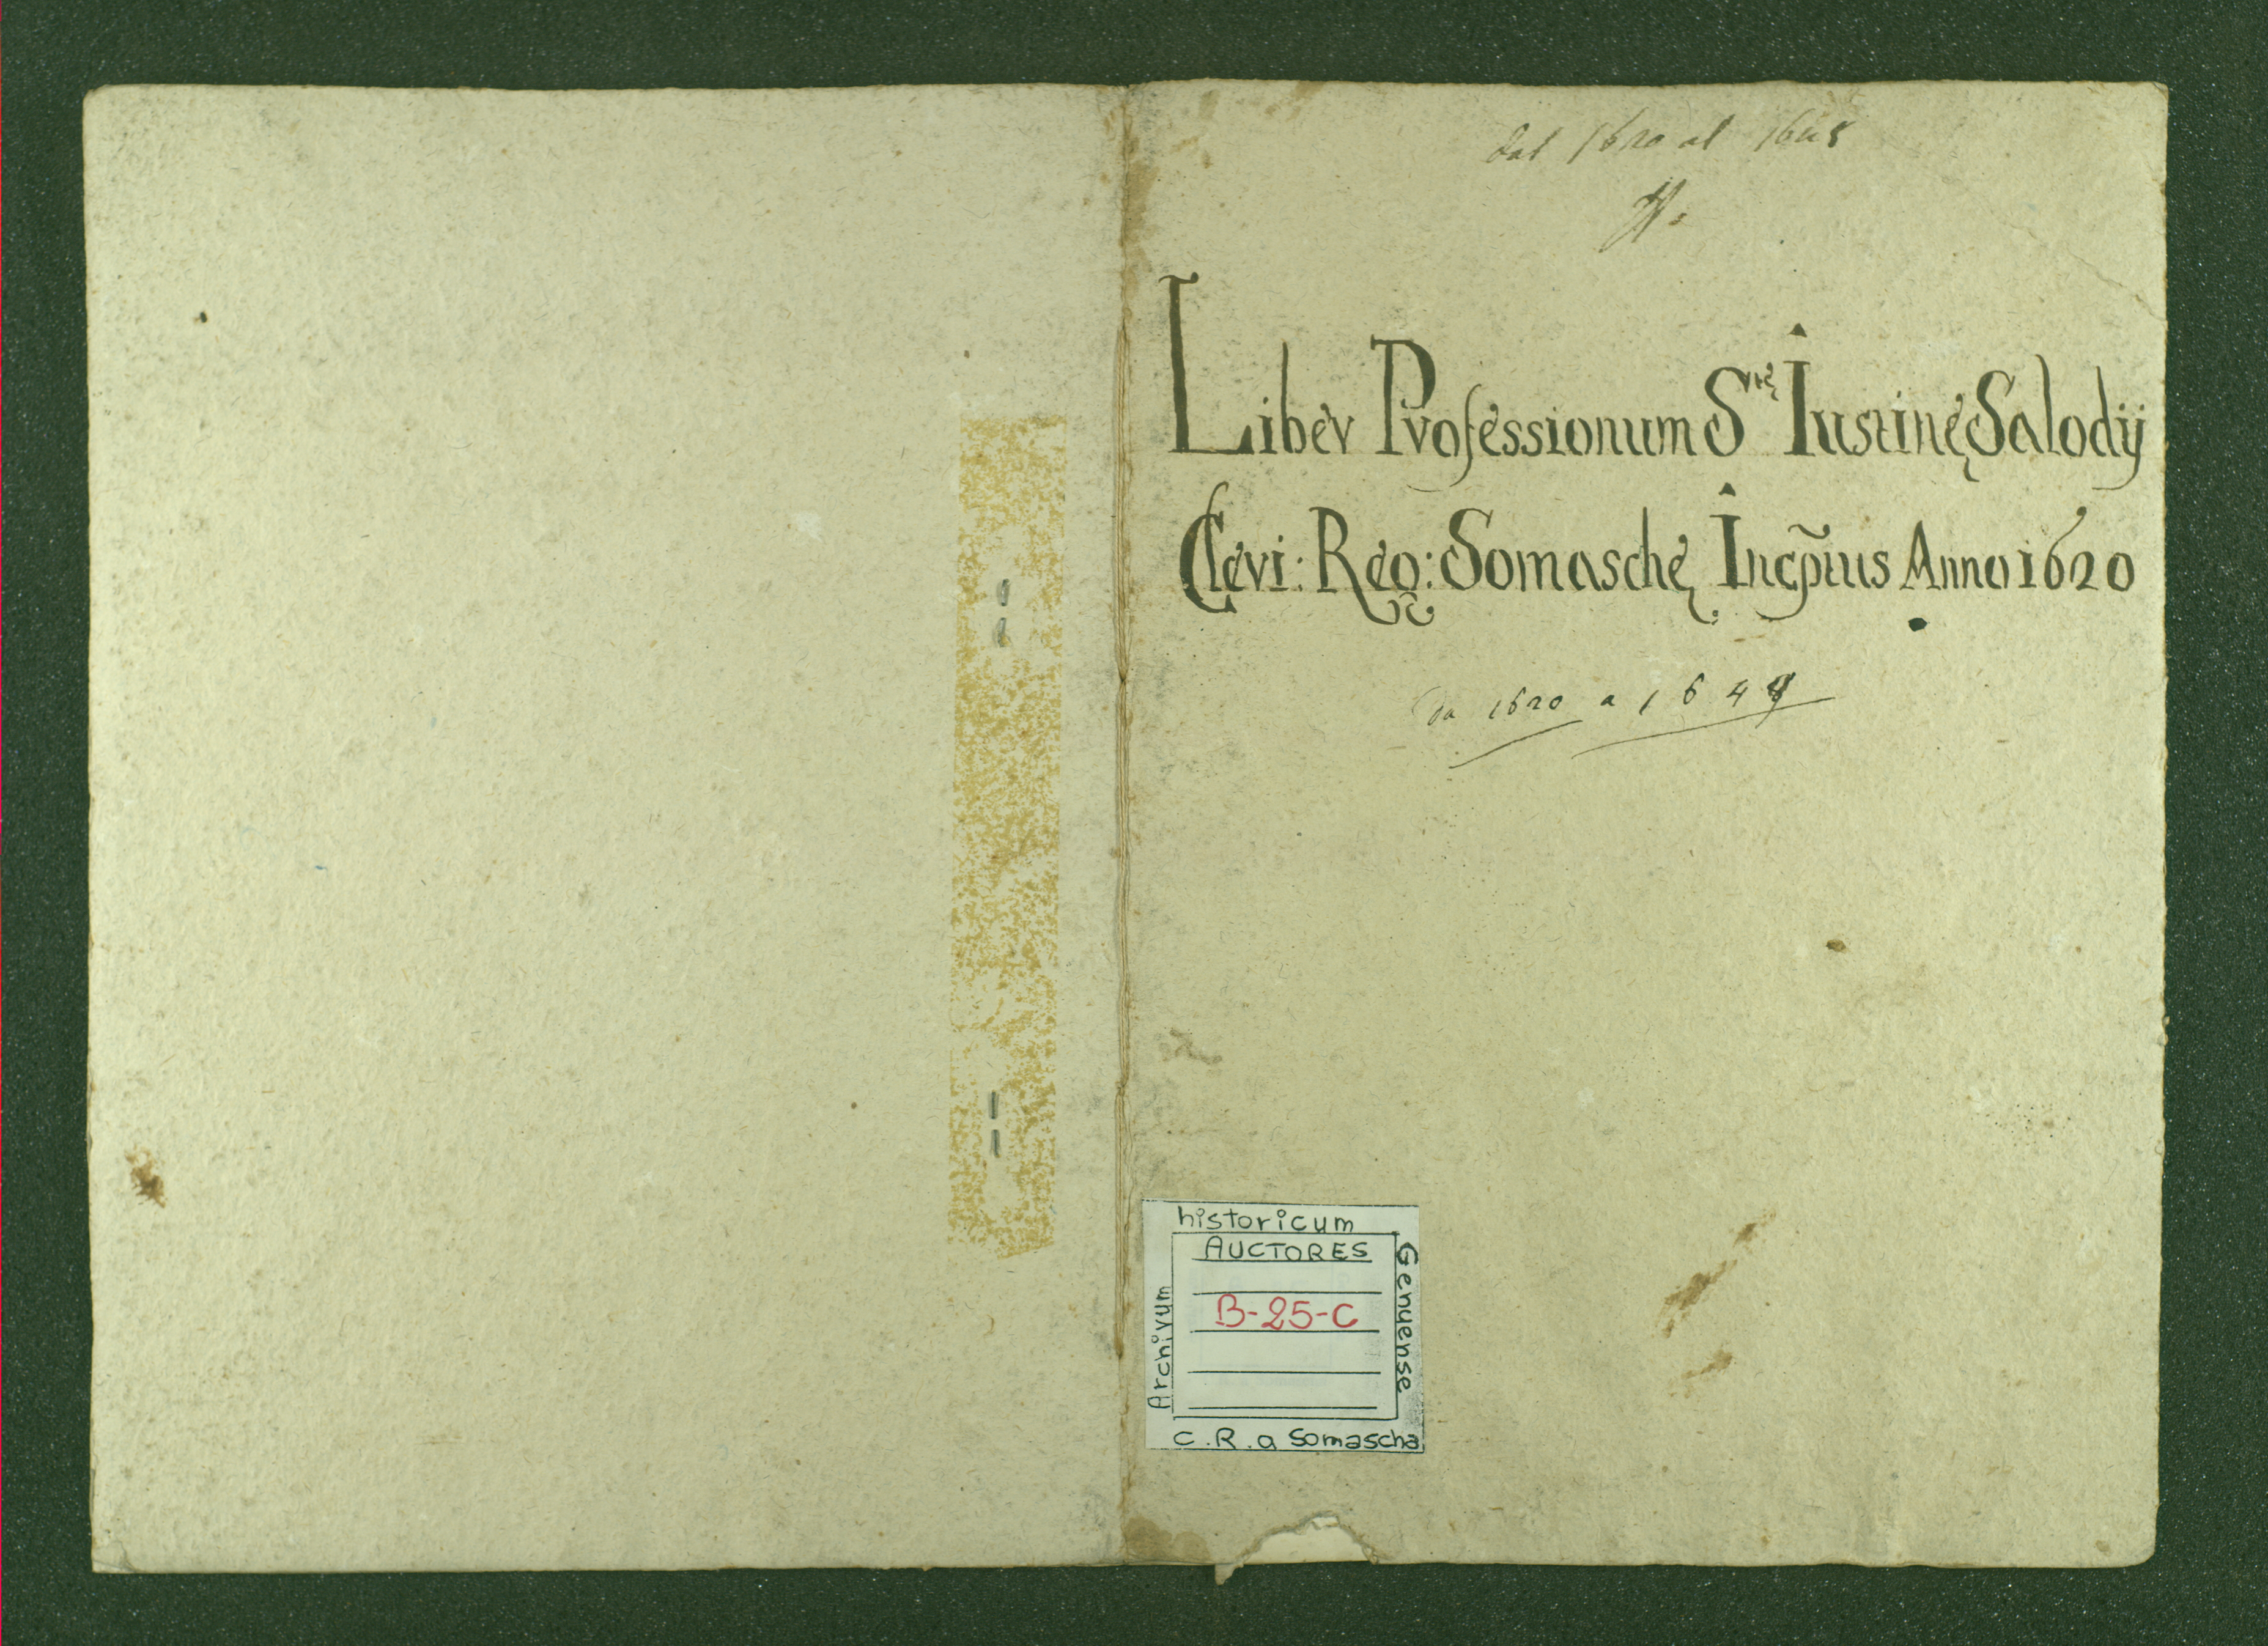 dal 1620 al 1648
Liber Professionum S.tę Iustinę Salodij
Cleri: Reg: Somaschę Incęptus Anno 1620
da 1620 a 164
historicum
AUCTORES
B-25-C
Archivum
Genuense
C.R.a Somascha